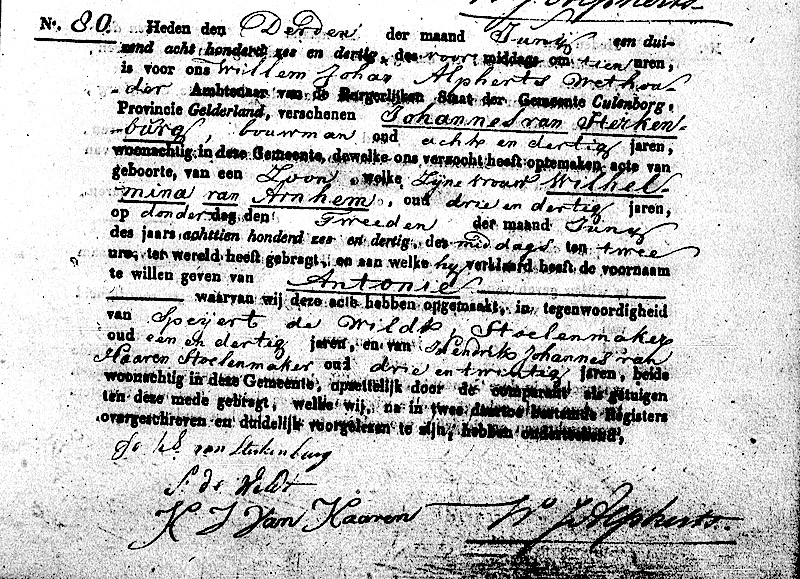 W. J. Alpherts
No. 80. Heden den Derden der maand Juny een dui-
zend acht honderd zes en dertig, des voor middags om tien uren,
is voor ons Willem Johan Alpherts Wethou-
der Ambtenaar van de Burgerlijken Staat der Gemeente Culenborg,
Provincie Gelderland, verschenen Johannes van Sterken-
burg, bouwman oud acht en dertig jaren,
woonachtig in deze Gemeente, dewelke ons verzocht heeft optemaken acte van
geboorte, van een Zoon, welke Zyne vrouw Wilhel-
mina van Arnhem, oud drie en dertig jaren,
op donderdag den Tweeden der maand Juny
des jaars achttien honderd zes en dertig, des middags ten twee
ure, ter wereld heeft gebragt, en aan welke hy verklaard heeft de voornaam
te willen geven van Antonie
waarvan wij deze acte hebben opgemaakt, in tegenwoordigheid
van Speijert de Wildt, Stoelenmaker
oud een en dertig jaren, en van Hendrik Johannes van
Haaren Stoelenmaker oud drie en twintig jaren, beide
woonachtig in deze Gemeente, opzettelijk door de comparant als getuigen
ten deze mede gebragt, welke wij, na in twee daartoe bestemde Registers
overgeschreven en duidelijk voorgelezen te zijn, hebben onderteekend,
van Sterkenburg
S. de Wildt
H J Van Haaren
W. J. Alpherts